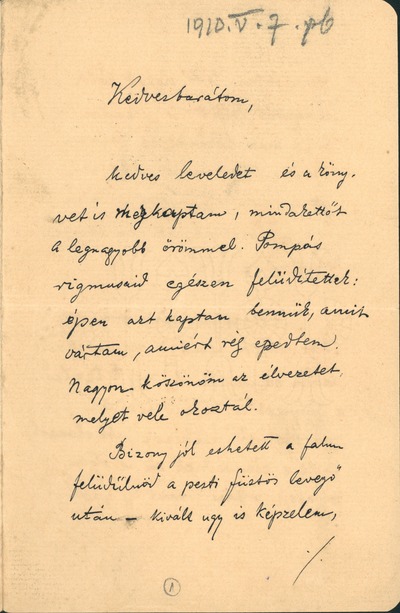 1920. V. 7. pb
Kedves barátom,
kedves leveledet és a köny-
vet is megkaptam, mindakettőt
a legnagyobb örömmel. Pompás
rigmusaid egészen felüdítettek:
épen azt kaptam bennük, amit
vártam, amiért rég epedtem.
Nagyon köszönöm az élvezetet,
melyet vele okoztál.
Bizony jól eshetett a falun
felüdülnöd a pesti füstös levegő
után – kivált ugy is képzelem,
./.
1